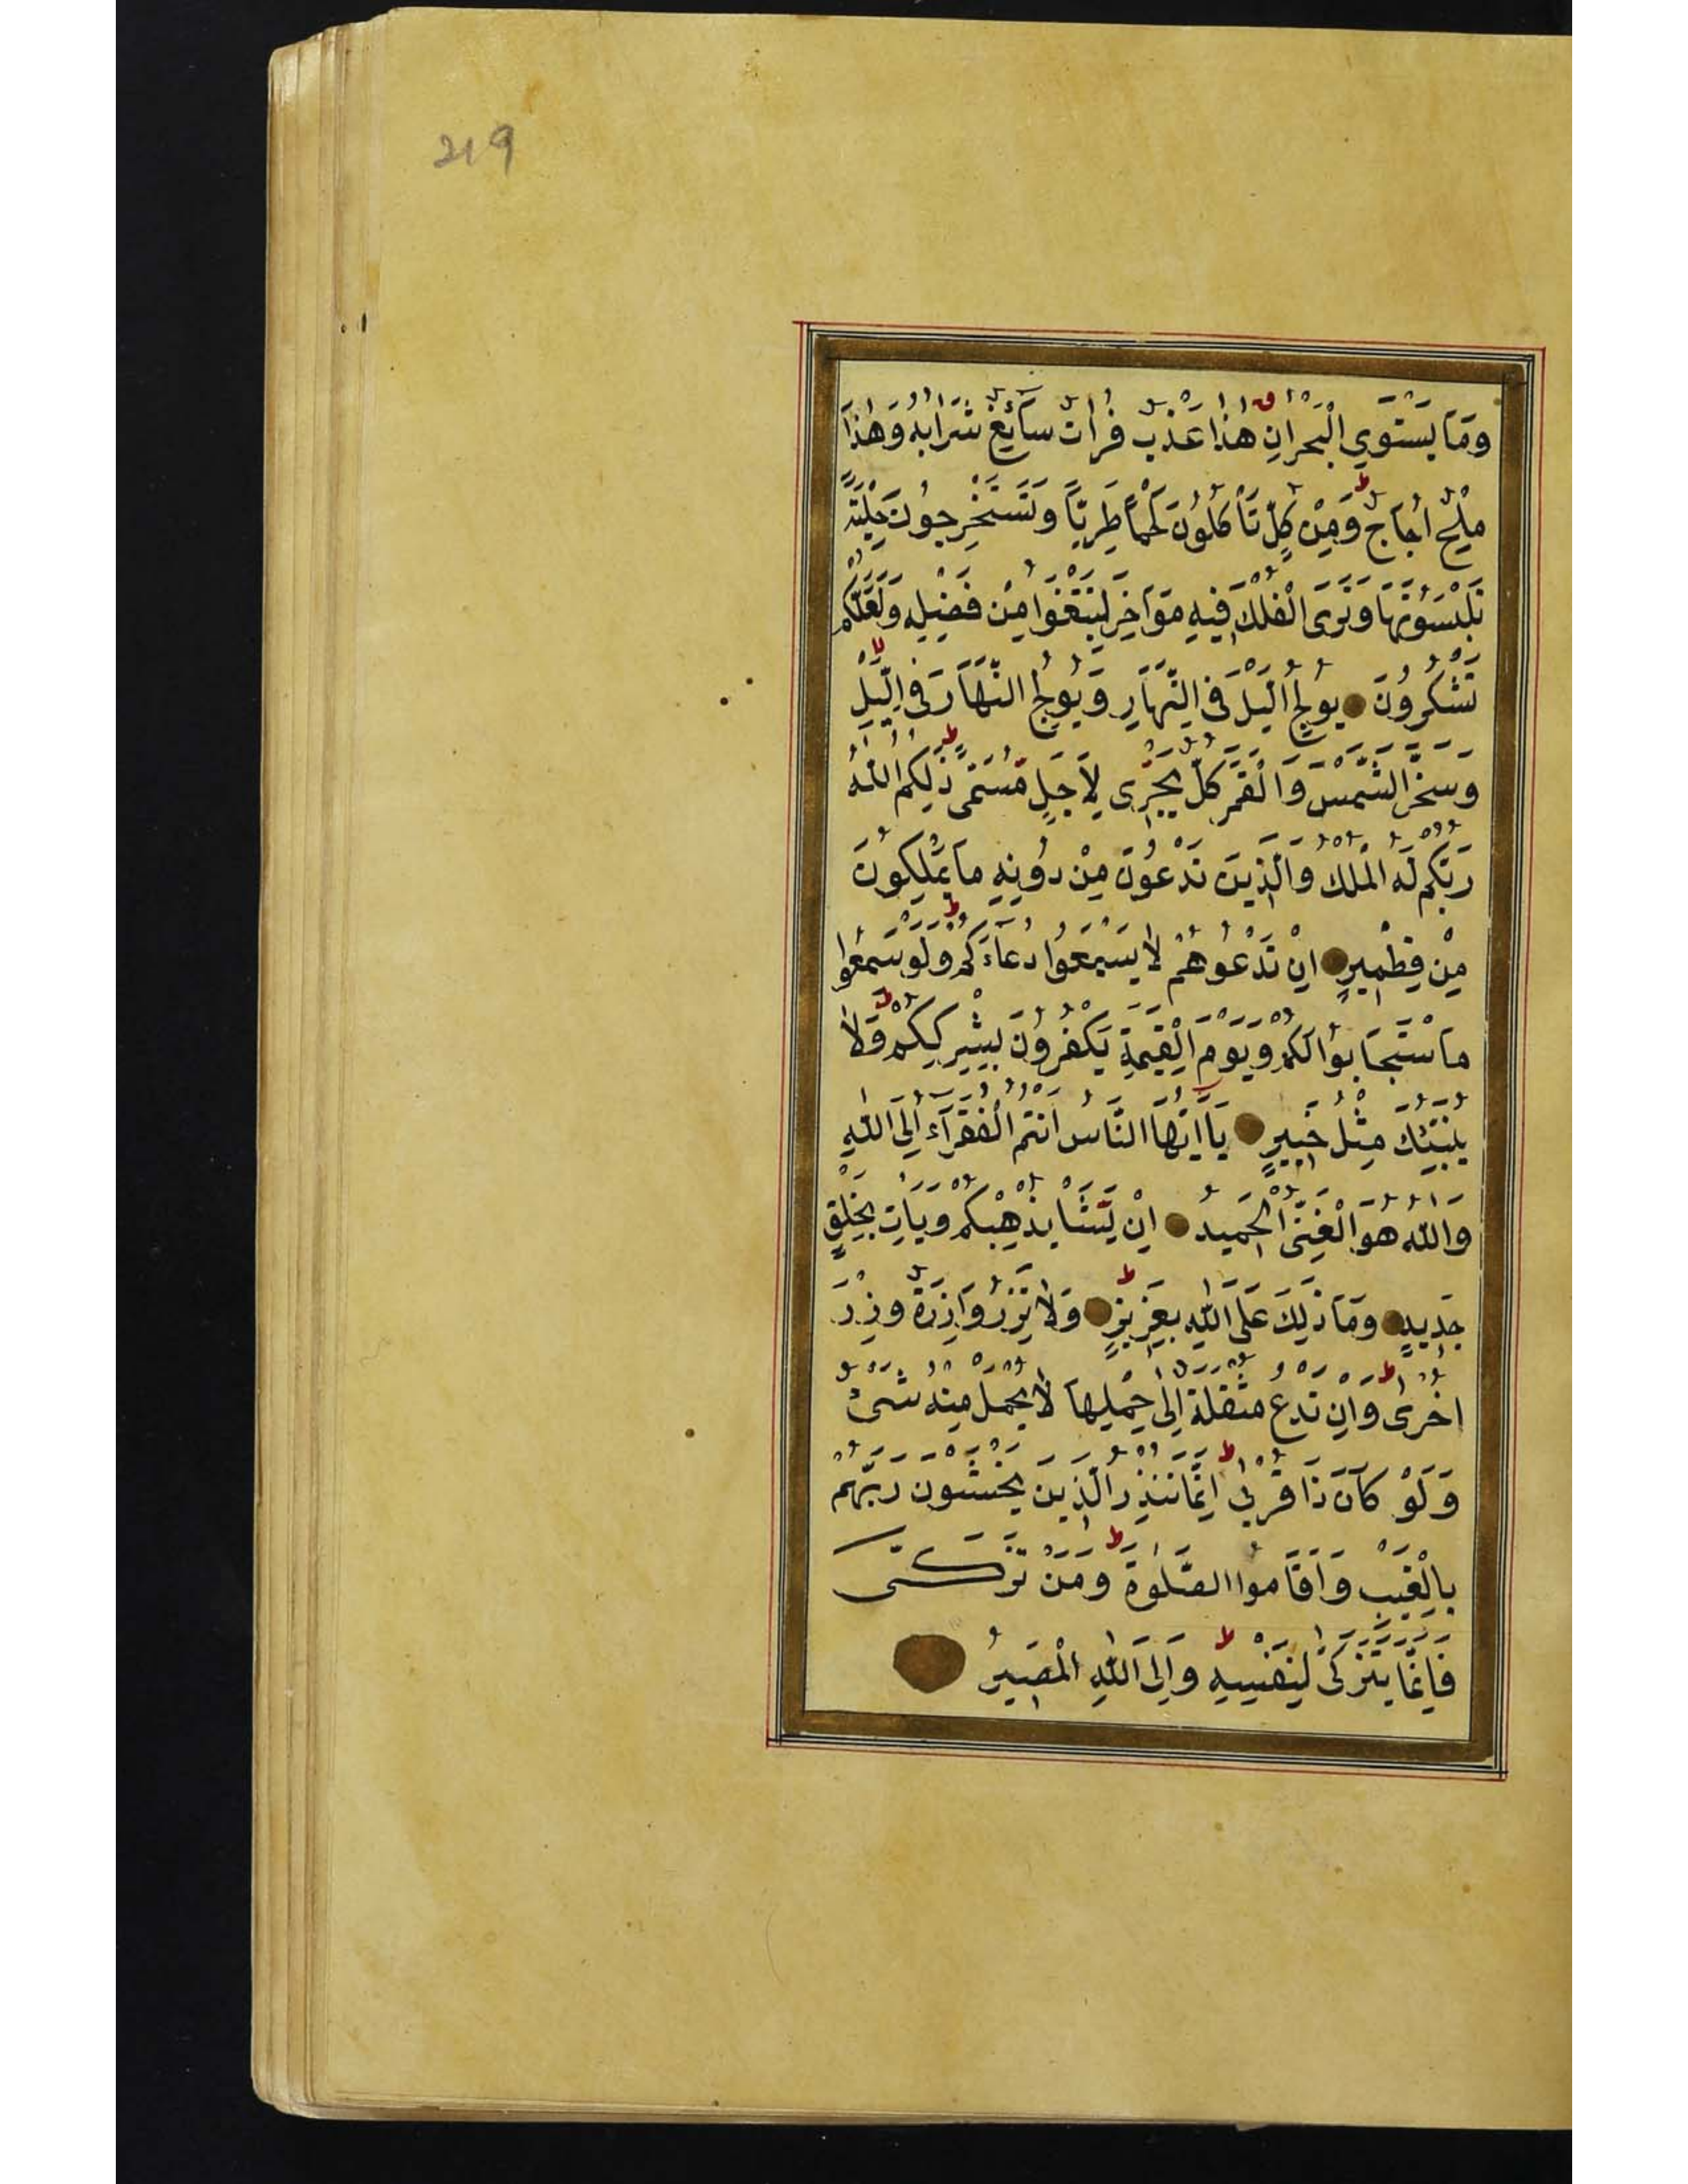 219
وَمَا يَسْتَوِي الْبَحْرَانِ هٰذَا عَذْبٌ فُرَاتٌ سَآئِغٌ شَرَابُهُ وَهٰذَا
مِلْحٌ اُجَاجٌ ط وَمِنْ كُلٍّ تَأْكُلُونَ لَحْمًا طَرِيًّا وَتَسْتَخْرِجُونَ حِلْيَةً
تَلْبَسُونَهَا وَتَرَى الْفُلْكَ فِيهِ مَوَاخِرَ لِتَبْتَغُوا مِنْ فَضْلِهِ وَلَعَلَّكُمْ
تَشْكُرُونَ يُولِجُ الَّيْلَ فِي النَّهَارِ وَيُولِجُ النَّهَارَ فِي الَّيْلِ لا
وَسَخَّرَ الشَّمْسَ وَالْقَمَرَ كُلٌّ يَجْرِى لِاَجَلٍ مُسَمًّى ط ذٰلِكُمُ اللّٰهُ
رَبُّكُمْ لَهُ الْمُلْكُ وَالَّذِينَ تَدْعُونَ مِنْ دُونِهِ مَا يَمْلِكُونَ
مِنْ قِطْمِيرٍ اِنْ تَدْعُوهُمْ لَا يَسْمَعُوا دُعَآءَكُمْ ط وَلَوْ سَمِعُوا
مَا اسْتَجَابُوا لَكُمْ وَيَوْمَ الْقِيٰمَةِ يَكْفُرُونَ بِشِرْكِكُمْ ط وَلَا
يُنَبِّئُكَ مِثْلُ خَبِيرٍ يَآ اَيُّهَا النَّاسُ اَنْتُمُ الْفُقَرَآءُ اِلَى اللّٰهِ
وَاللّٰهُ هُوَ الْغَنِىُّ الْحَمِيدُ اِنْ يَشَأْ يُذْهِبْكُمْ وَيَأْتِ بِخَلْقٍ
جَدِيدٍ وَمَا ذٰلِكَ عَلَى اللّٰهِ بِعَزِيزٍ ط وَلَا تَزِرُ وَازِرَةٌ وِزْرَ
اُخْرٰى ط وَاِنْ تَدْعُ مُثْقَلَةٌ اِلٰى حِمْلِهَا لَا يُحْمَلْ مِنْهُ شَىْءٌ
وَلَوْ كَانَ ذَا قُرْبٰى ط اِنَّمَا تُنْذِرُ الَّذِينَ يَخْشَوْنَ رَبَّهُمْ
بِالْغَيْبِ وَاَقَامُوا الصَّلٰوةَ ط وَمَنْ تَزَكّٰى
فَاِنَّمَا يَتَزَكّٰى لِنَفْسِهِ ط وَاِلَى اللّٰهِ الْمَصِيرُ